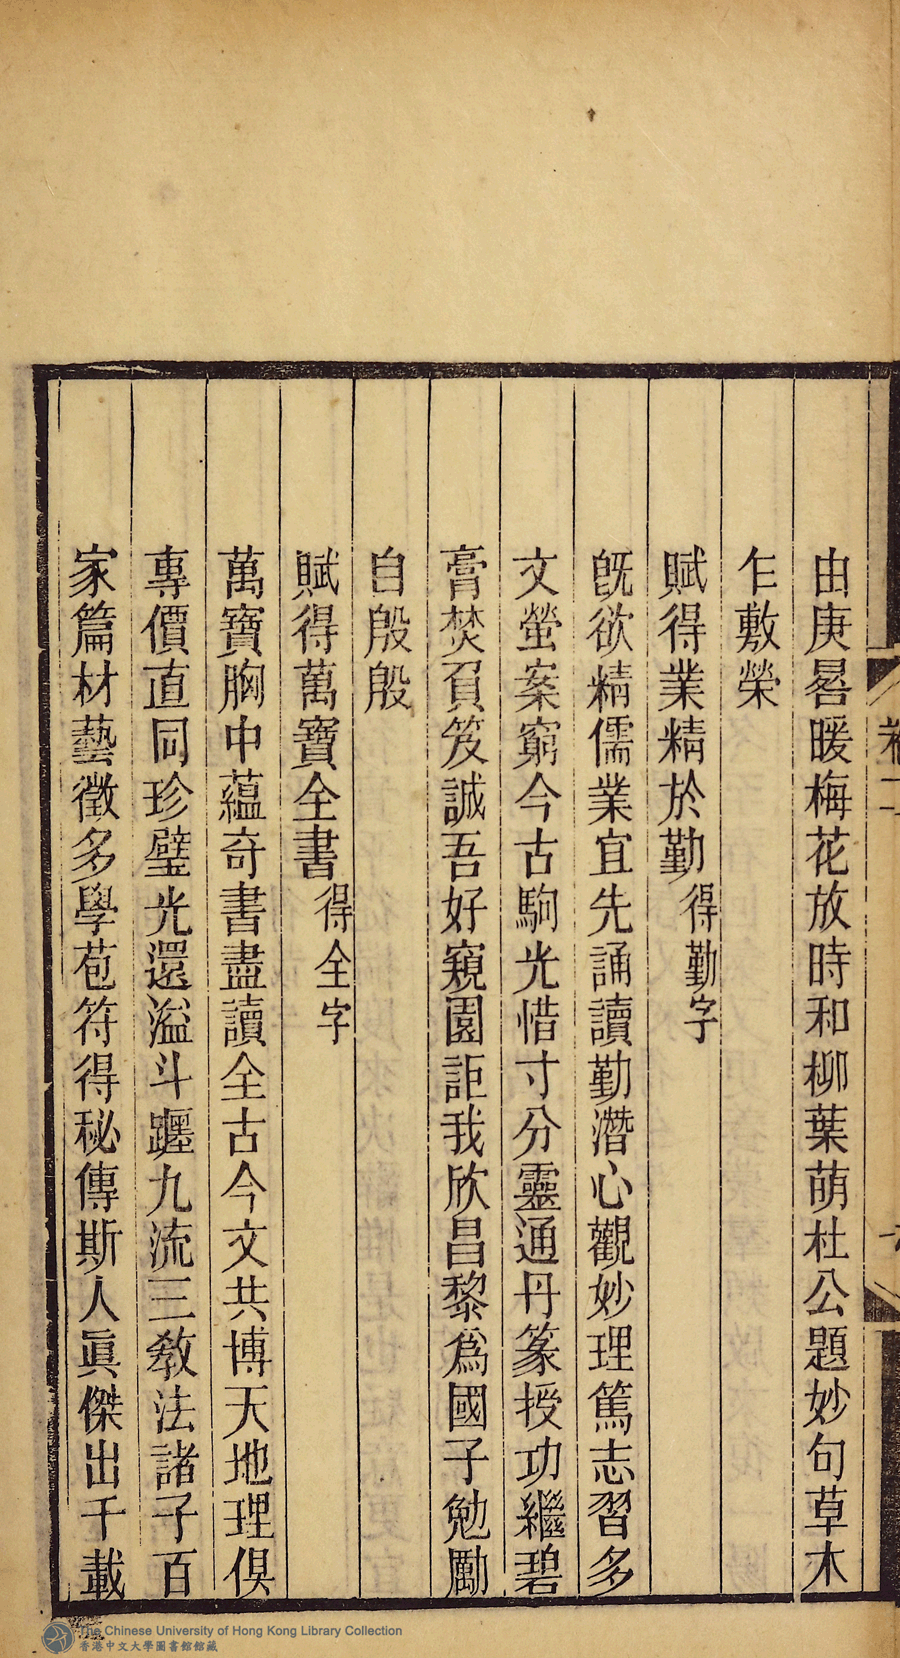 由庚晷暖梅花放時和柳葉萌杜公題妙句草木
乍敷榮
賦得業精於勤得勤字
旣欲精儒業宜先誦讀勤潛心觀妙理篤志習多
文螢案窮今古駒光惜寸分靈通丹篆授功繼碧
膏焚負笈誠吾好窺園詎我欣昌黎爲國子勉勵
自殷殷
賦得萬寶全書得全字
萬寶胸中蘊奇書盡讀全古今文共博天地理俱
專價直同珍璧光還溢斗躔九流三敎法諸子百
家篇材藝徵多學苞符得秘傳斯人眞傑出千載
The Chinese University of Hong Kong Library Collection
香港中文大學圖書館館藏